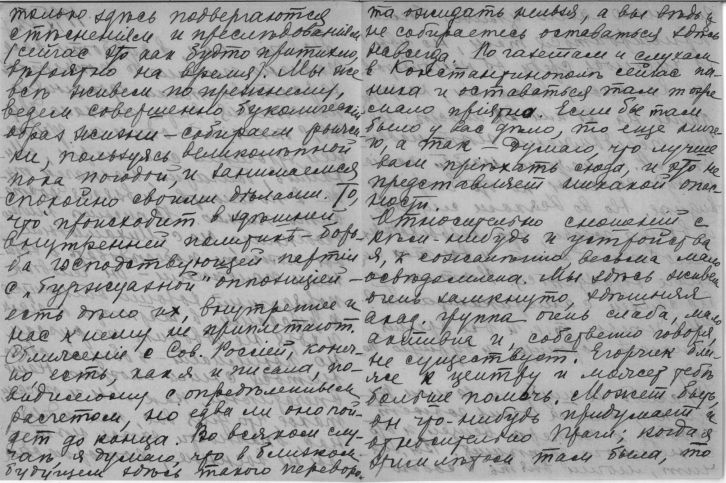 только здѣсь подвергаются
стѣсненіям и преслѣдованіям
(сейчас это как будто притихло,
вѣроятно на время). Мы же
всѣ живем по прежнему,
ведем совершенно буколическій
образ жизни — собираем рыжи-
ки, пользуясь великолѣпной
пока погодой, и занимаемся
спокойно своими дѣлами. То,
что происходит в здѣшней
внутренней политикѣ — борь-
ба господствующей партіи
с „буржуазной" оппозиціей —
есть дѣло их, внутреннее и
нас к нему не приплетают.
Сближеніе с Сов. Россіей, конеч-
но есть, как я и писала, по-
видимому с опредѣленным
расчетом, но едва ли оно пой-
дет до конца. Во всяком слу-
чаѣ я думаю, что в близком
будущем здѣсь такого переворо-
та ожидать нельзя, а вы вѣдь и
не собираетесь оставаться здѣсь
навсегда. По газетам и слухам
в Константинополѣ сейчас па-
ника и оставаться там тоже
мало пріятно. Если бы там
было у вас дѣло, то еще ниче-
го, а так — думаю, что лучше
вам пріѣхать сюда, и это не
представляет никакой опас-
ности.
Относительно сношеній с
кѣм-нибудь и устройства
я, к сожалѣнію весьма мало
освѣдомлена. Мы здѣсь живем
очень замкнуто, здѣшняя
акад. группа очень слаба, мало
активна и, собственно говоря,
не существует. Егорчик бли-
же к центру и может тебѣ
больше помочь. Может быть,
он что-нибудь придумает и
относительно Праги; когда я
этим лѣтом там была, то